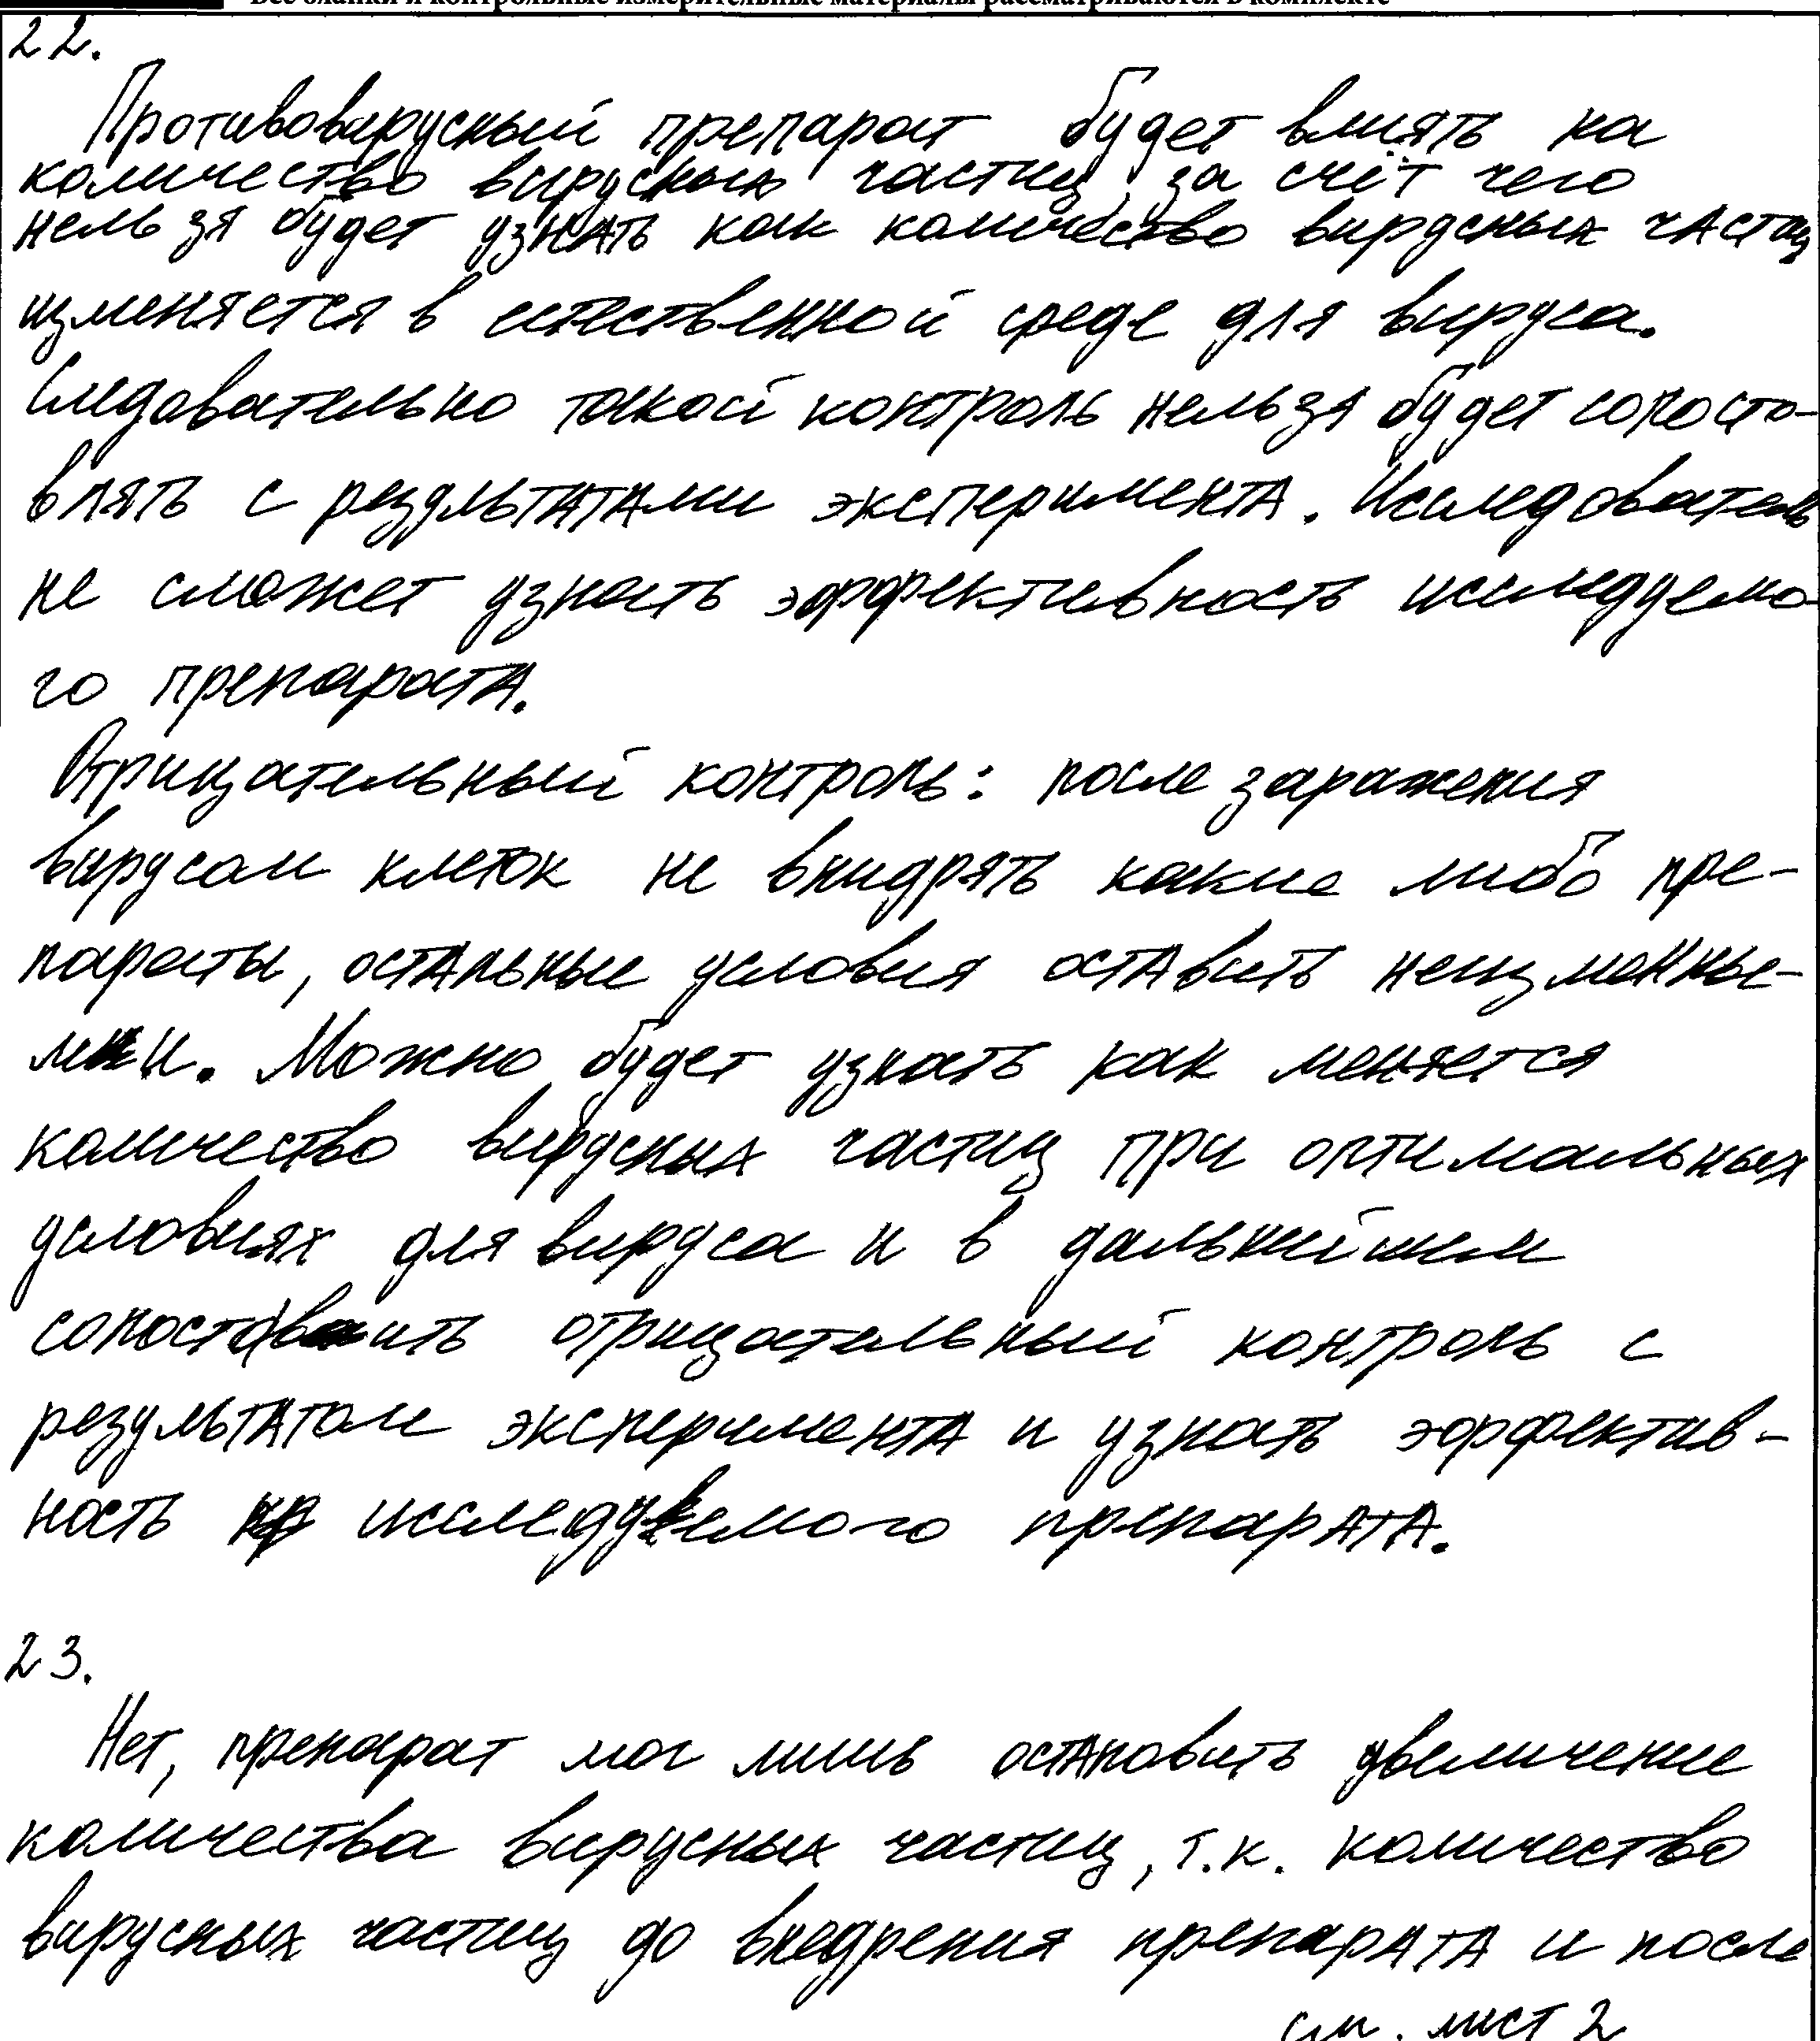 Все бланки и контрольные измерительные материалы рассматриваются в комплекте
22.
Противовирусный препарат будет влиять на
количество вирусных частиц, за счёт чего
нельзя будет узнать как количество вирусных частиц
изменяется в естественной среде для вируса.
Следовательно такой контроль нельзя будет сопоста-
влять с результатами эксперимента. Исследователь
не сможет узнать эффективность исследуемо-
го препарата.
Отрицательный контроль: после заражения
вирусом клеток не внидрять какие либо пре-
параты, остальные условия оставить неизменны-
ми. Можно будет узнать как меняется
количество вирусных частиц при оптимальных
условиях для вируса и в дальнейшем
сопоставить отрицательный контроль с
результатом эксперимента и узнать эффектив-
ность исследуемого препарата.
23.
Нет, препарат мог лишь остановить увеличение
количества вирусных частиц, т.к. количество
вирусных частиц до внедрения препарата и после
см. лист 2